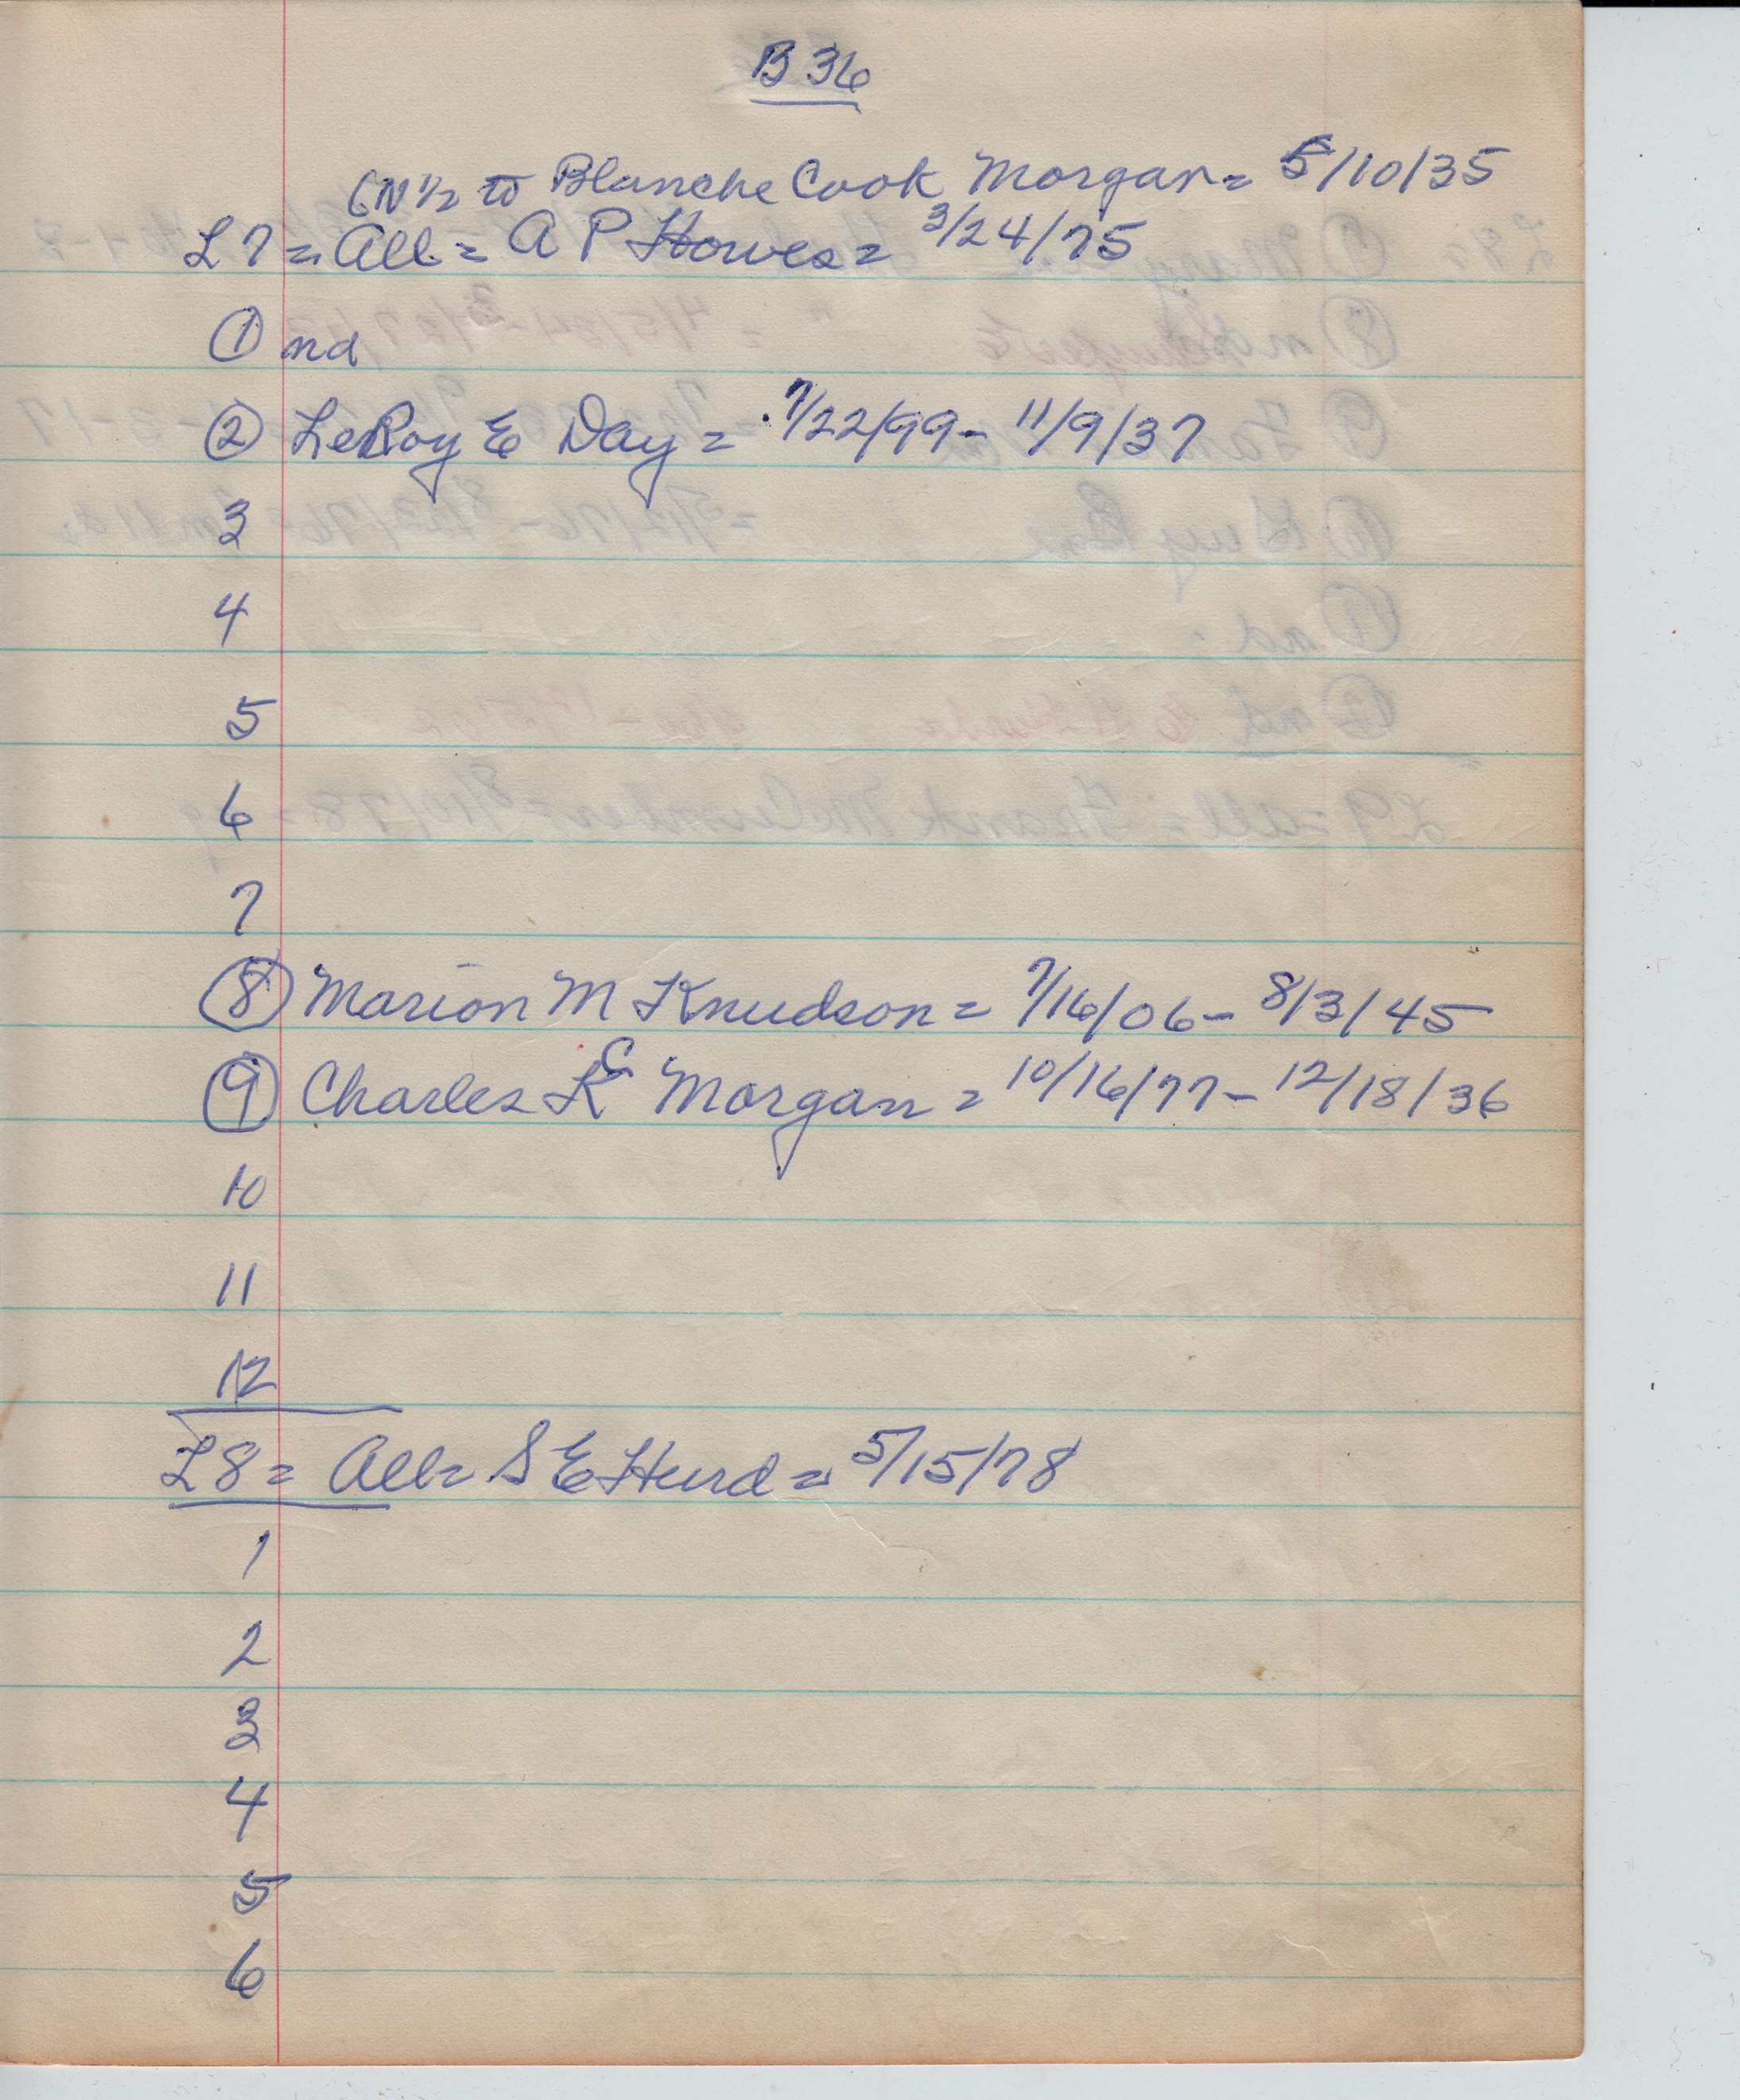 B 36
(N 1/2 to Blanche Cook Morgan = 5/10/35
L7 = All = A P Howes = 3/24/75
① nd
② LeRoy E Day = 7/22/99 - 11/9/37
3
4
5
6
7
⑧ Marion M Knudson = 7/16/06 - 8/3/45
⑨ Charles K C Morgan = 10/16/77 - 12/18/36
10
11
12
L8 = All = S E Hurd = 5/15/78
1
2
3
4
5
6